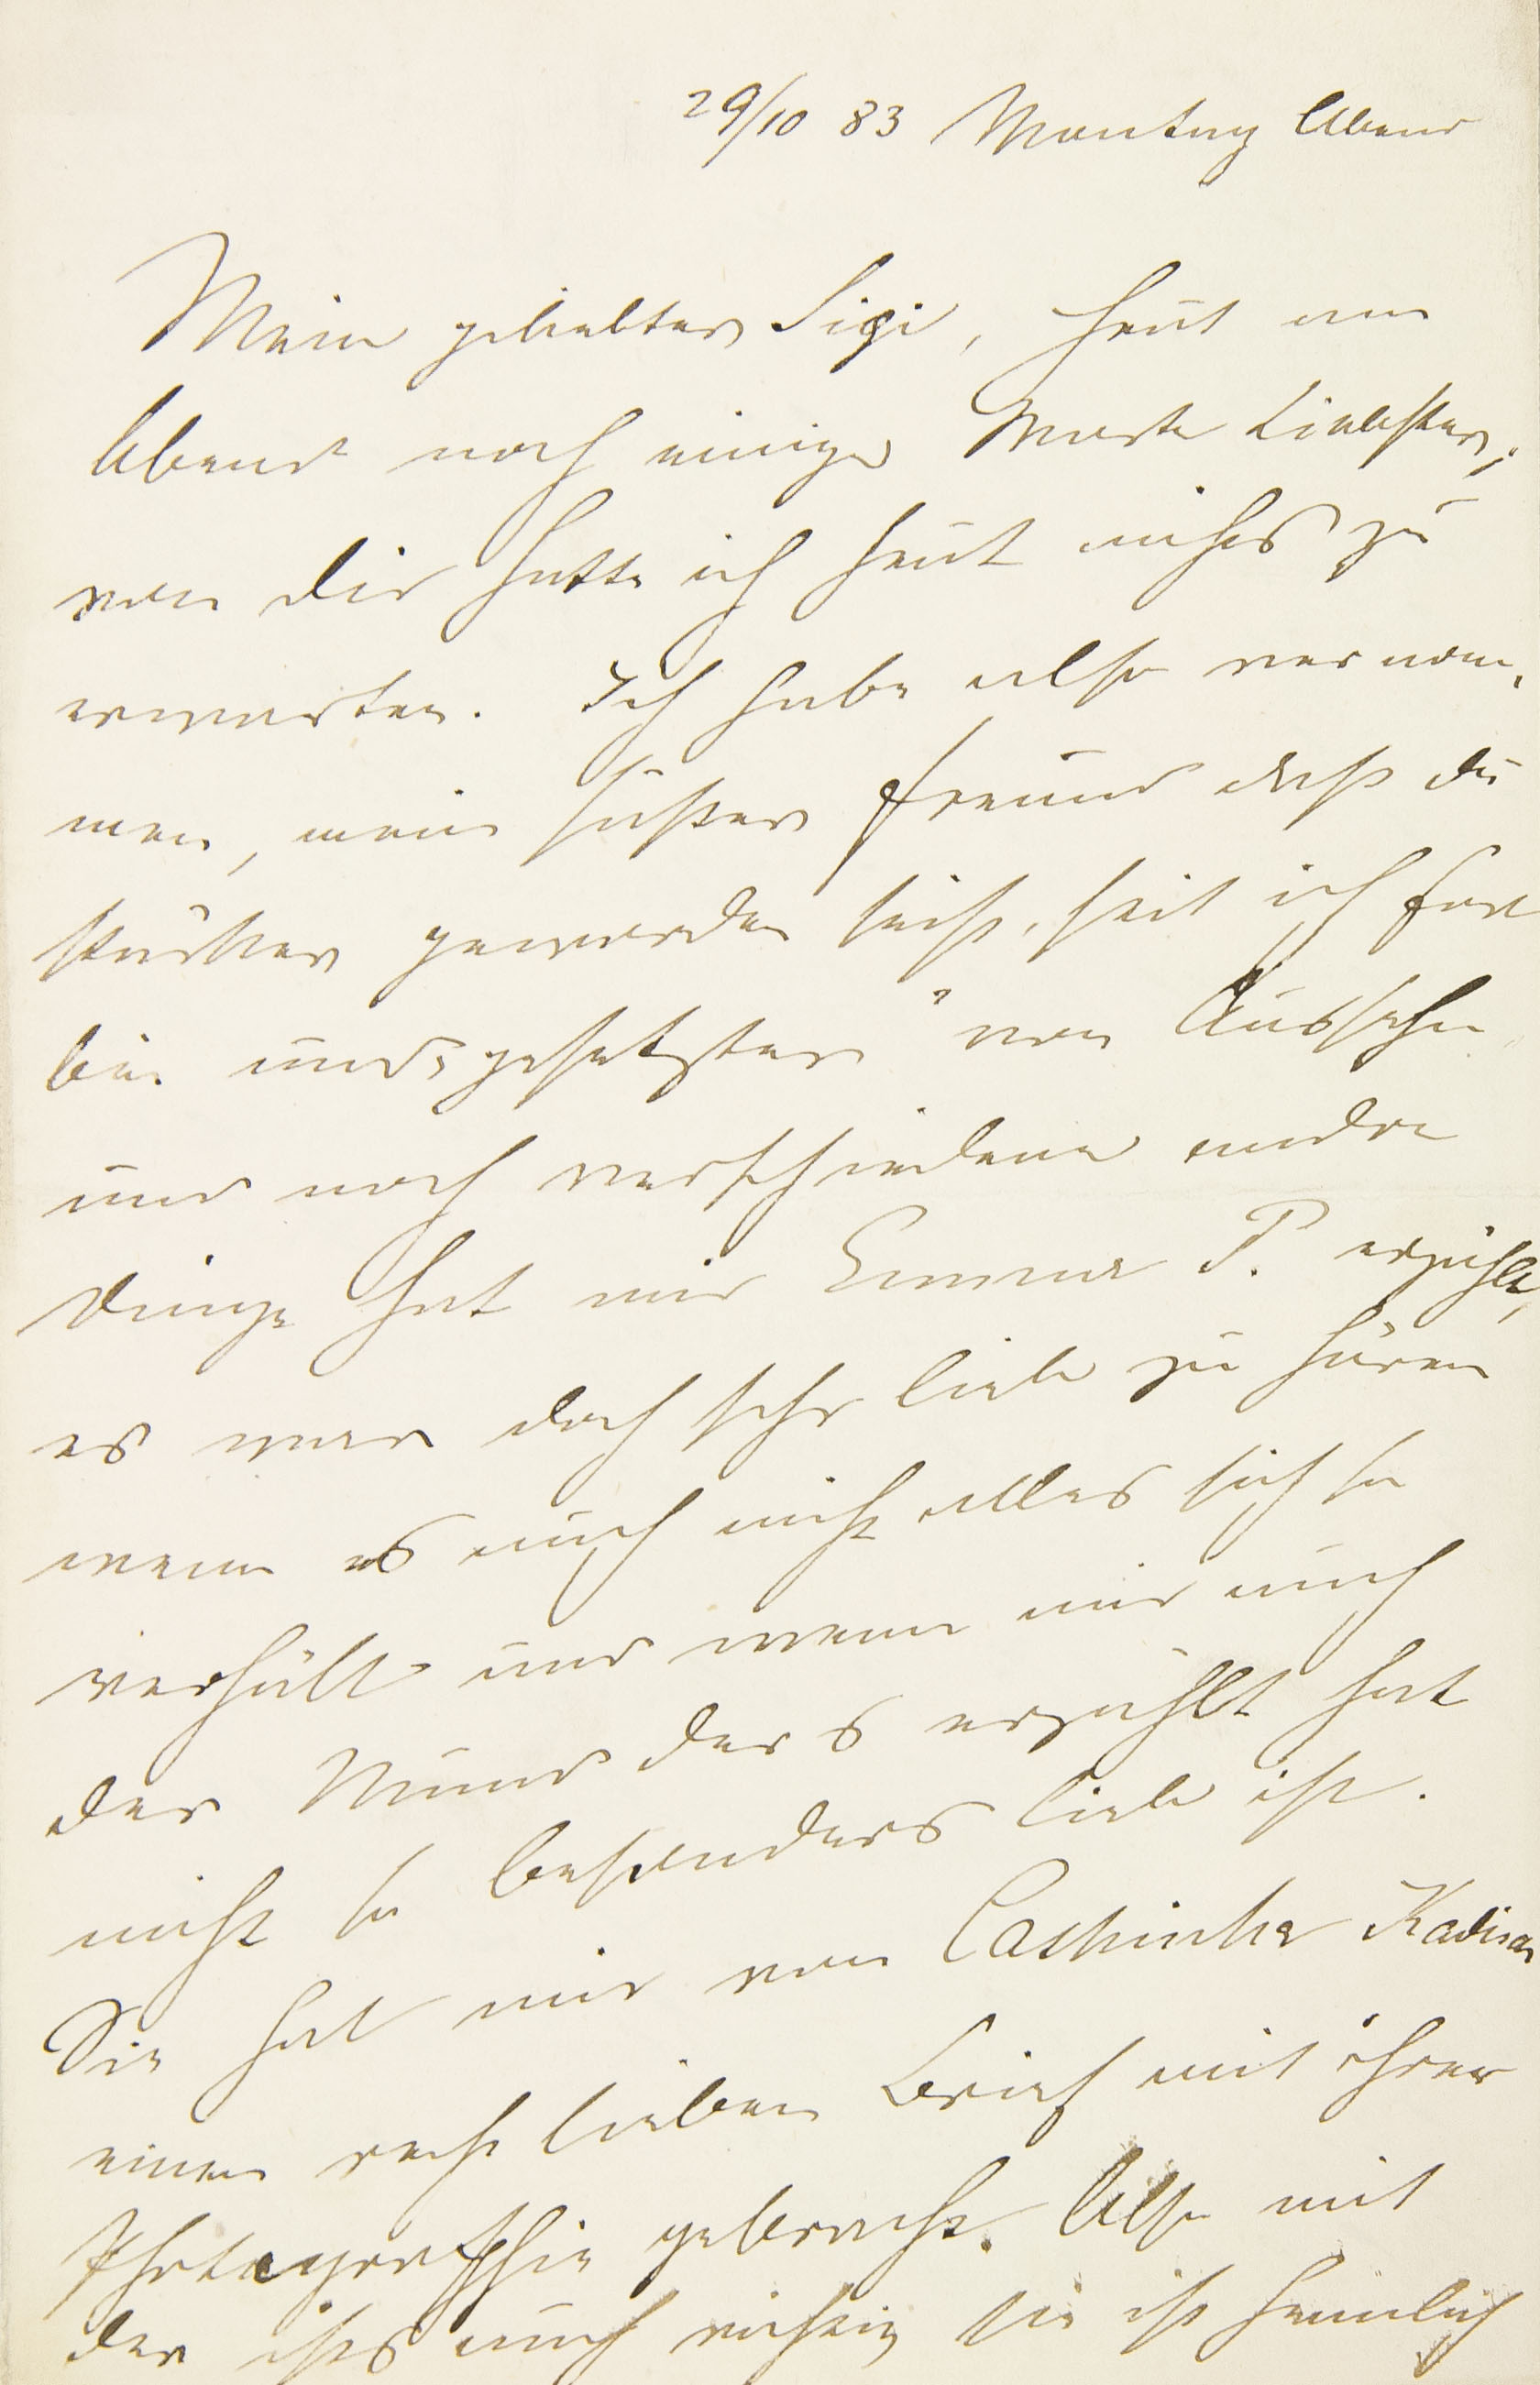 29/10 83 Montag Abend
Mein geliebter Sigi, heut am
Abend noch einige Worte Liebster,
von dir hatte ich heut nichts zu
erwarten. Ich habe also vernom-
men, mein süßer Freund daß du
stärker geworden seist, seit ich fort
bin und "gesetzter" von Aussehen
und noch verschiedene andre
Dinge hat mir Emma P. erzählt,
es war doch sehr lieb zu hören
wenn es auch nicht alles sich so
verhält und wenn mir auch
der Mund der's erzählt hat
nicht so besonders lieb ist.
Sie hat mir von Cachinka Kadisch
einen recht lieben Brief mit ihrer
Photographie gebracht. Also mit
der ists auch richtig sie ist heimlich